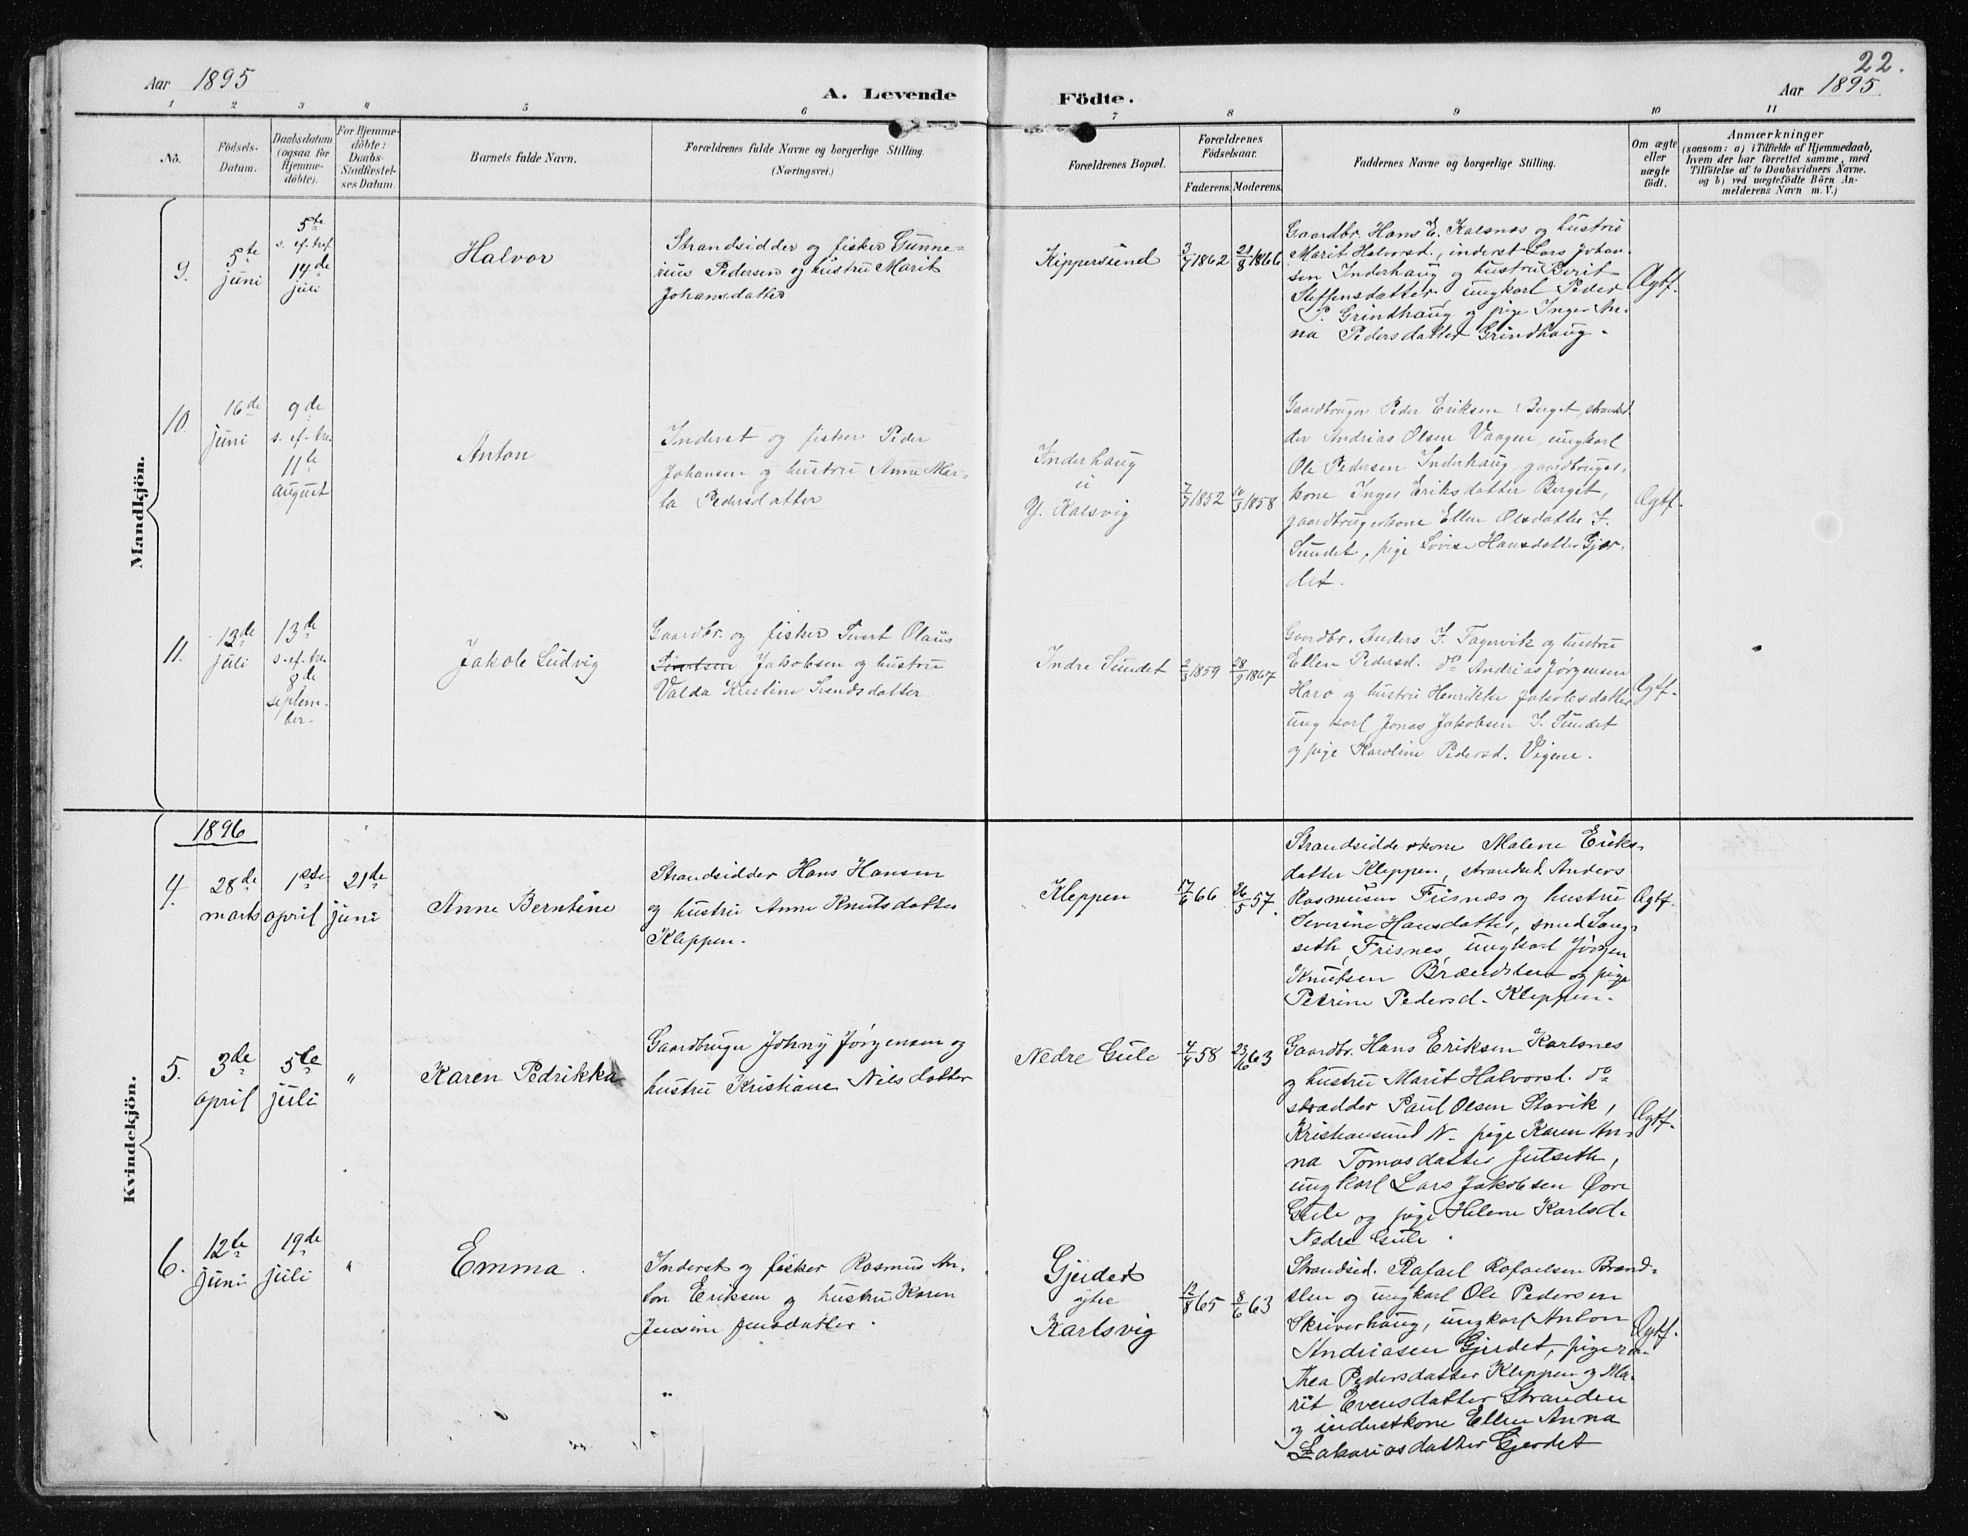 22.
Aar 1895
Aar 1895
A. Levende Födte.
1 2 3 4 5 6 7 8 9 10 11
No.
Födsels-
Datum.
Daabsdatum
(ogsaa for
Hjemme-
döbte).
For Hjemme-
döbte:
Daabs-
Stadfæstel-
ses Datum.
Barnets fulde Navn.
Forældrenes fulde Navne og borgerlige Stilling.
(Næringsvei.)
Forældrenes Bopæl.
Forældrenes
Födselsaar.
Faderens. Moderens.
Faddernes Navne og borgerlige Stilling.
Om ægte
eller
uægte
födt.
Anmærkninger
(saasom: a) i Tilfælde af Hjemmedaab,
hvem der har forrettet samme, med
Tilföielse af to Daabsvidners Navne.
og b) ved uægtefödte Börn An-
melderens Navn m. V.)
Mandkjön.
9.
5te
juni
5te
s. ef. tref.
14de
juli
Halvor
Strandsidder og fisker Gunne-
rius Pedersen og hustru Marit
Johansdatter
Kippersund
3/7 1862
21/8 1866
Gaardbr. Hans E. Kalsnæs og hustru
Marit Halvorsd., inderst Lars Johan-
sen Inderhaug og hustru Berit
Steffensdatter, ungkarl Peder
P. Grindhaug og pige Inger An-
na Pedersdatter Grindhaug.
Ægtf.
10.
16de
juni
9de
s. ef. tre.
11te
august
Anton
Inderst og fisker Peder
Johansen og hustru Anne Mar-
ta Pedersdatter
Inderhaug
u
Y. Kalsvig
7/7 1852
16/3 1858
Gaardbruger Peder Eriksen Berget, strandsid-
der Andrias Olsen Vaagen, ungkarl
Ole Pedersen Inderhaug, gaardbruger-
kone Inger Eriksdatter Berget,
gaardbrugerkone Ellen Olsdatter I.
Sundet, pige Lovise Hansdatter Gjær-
det.
Ægtf.
11.
12de
juli
13de
s. ef. tre.
8de
septem-
ber.
Jakob Ludvig
Gaardbr. og fisker Sivert Olaus
Sivertsen Jakobsen og hustru
Valda Kristine Svendsdatter
Indre Sundet
2/3 1859
28/9 1867
Gaardbr. Anders I. Fagervik og hustru
Ellen Pedersd. do Andrias Jørgensen
Harø og hustru Henrikke Jakobsdatter
ungkarl Jonas Jakobsen I. Sundet
og pige Karoline Pedersd. Vigene.
Ægtf.
Kvindekjön.
1896
4.
28de
marts
1ste
april
21de
juni
Anne Berntine
Strandsidder Hans Hansen
og hustru Anne Knutsdatter
Kleppen.
Kleppen
17/6 66
26/5 57.
Strandsidderkone Malene Eriks-
datter Kleppen, strandsid. Anders
Rasmusen Frisnæs og hustru
Severine Hansdatter, smed
Frisnes, ungkarl Jørgen
Knutsen Brændslen og pige
Petrine Pedersd. Kleppen.
Ægtf.
5.
3de
april
5te
juli
"
Karen Pedrikka
Gaardbruger Johny Jørgensen og
hustru Kristiane Nilsdatter
Nedre Gule
4/4 58
23/16 63
Gaardbr. Hans Eriksen Karlsnes
og hustru Marit Halvorsd. do
skrædder Paul Olsen Stavik,
Kristiansund N. pige Karen An-
na Tomasdatter Julseth,
ungkarl Lars Jakobsen Øvre
Gule og pige Helene Karlsd.
Nedre Gule.
Ægtf.
6.
12te
juni
19de
juli
"
Emma.
Inderst og fisker Rasmus An-
ton Eriksen og hustru Karen
Jensine Jensdatter.
"
Gjerdet
ytre
Karlsvig
12/8 65
8/6 63
Strandsid. Rafael Rafaelsen Brænd-
slen og ungkarl Ole Pedersen
Skriverhaug, ungkarl Anton
Andriasen Gjerdet, piger
thea Pedersdatter Kleppen og Ma-
rit Evensdatter Stranden
og inderstkone Ellen Anna
Zakariasdatter Gjerdet
Ægtf.